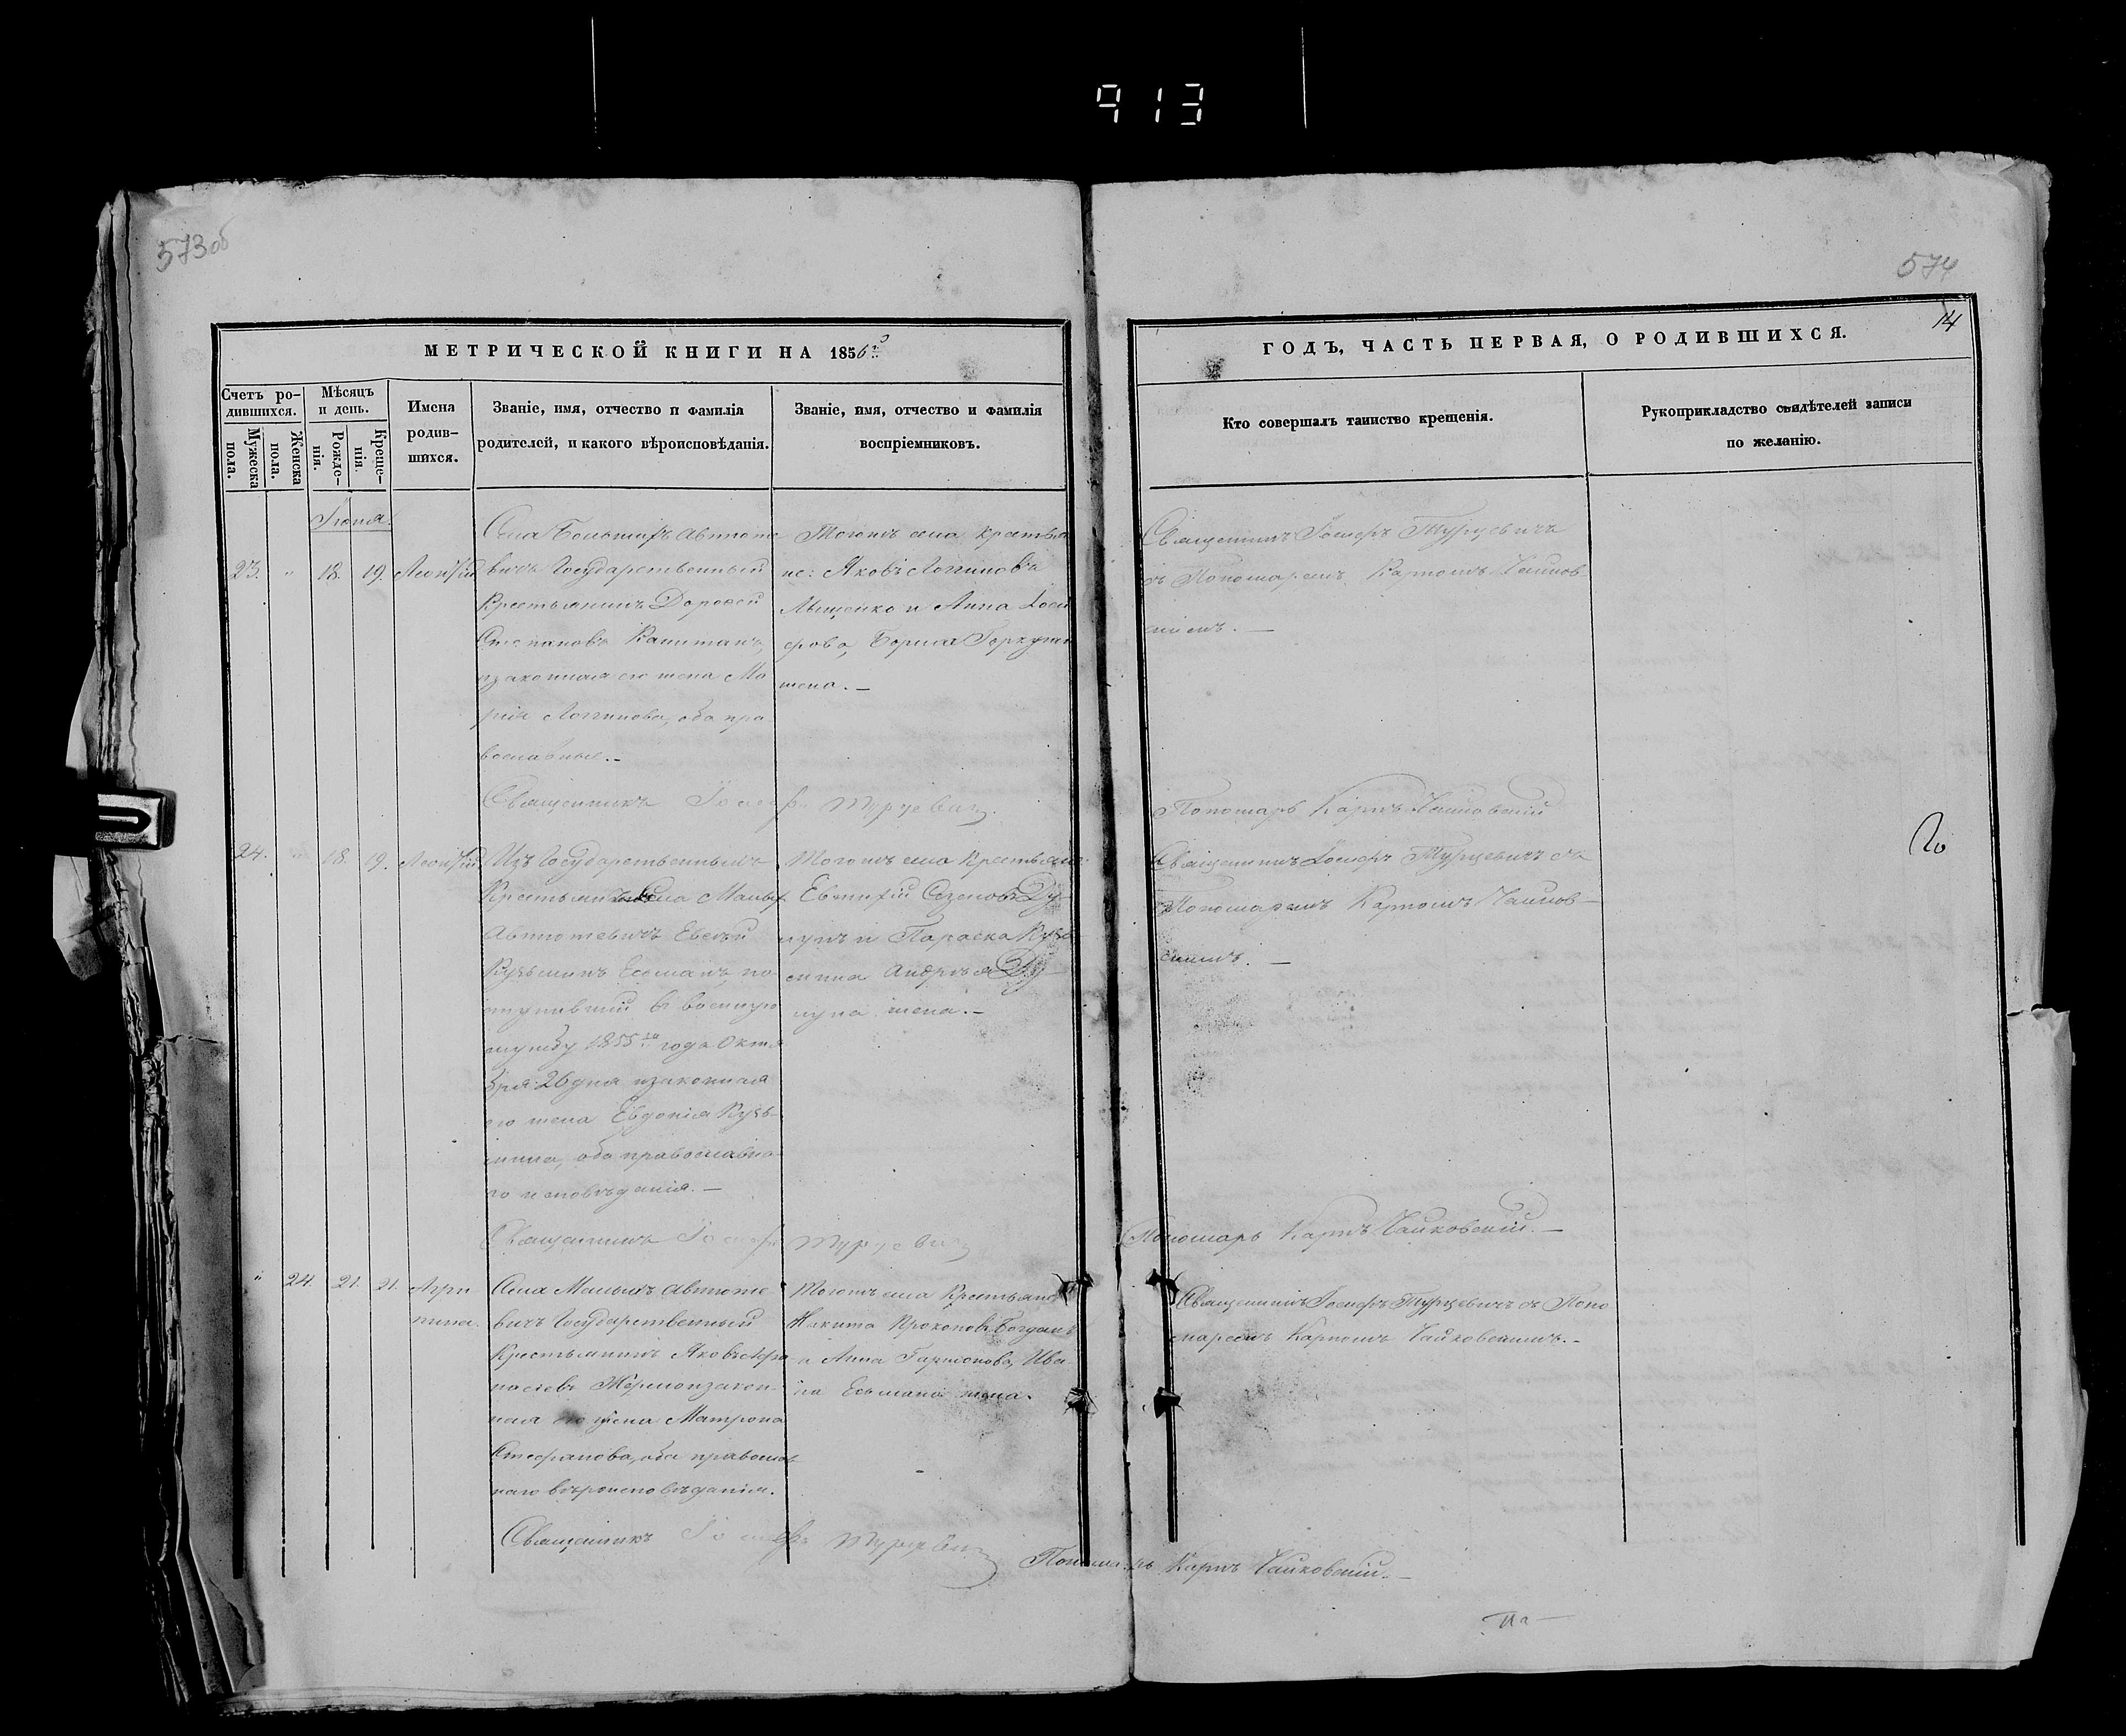 913
573 об
574
14
МЕТРИЧЕСКОЙ КНИГИ НА 1856й
ГОДЪ, ЧАСТЬ ПЕРВАЯ, О РОДИВШИХСЯ.
Счетъ ро-
дившихся.
Мужеска
пола.
Женска
пола.
Мѣсяцъ
и день.
Рожде-
нія.
Креще-
нія.
Имена
родив-
шихся.
Званіе, имя, отчество и фамилія
родителей, и какого вѣроисповѣданія.
Званіе, имя, отчество и фамилія
воспріемниковъ.
Кто совершалъ таинство крещенія.
Рукоприкладство свидѣтелей записи
по желанію.
Іюня.
23. " 18. 19. Леонтій
Села Большихъ Автюте
вичъ Государственный
Крестьянинъ Дорофей
Степановъ
изаконная его жена Ма
рія Логгинова, оба пра
вославные.-
Тогожъ села крестья
не: Яковъ Логгиновъ
и Анна Іоси
фова, Бориса
жена.-
Священникъ Іосифъ Турцевичъ
съ Пономаремъ Карпомъ Чайков-
скимъ.-
Священникъ Іосифъ Турцевичъ
Пономарь Карпъ Чайковскій
24. " 18. 19. Леонтій
Изъ Государственныхъ
Крестьянъ села Малыхъ
Автютевичъ Евсей
Кузьминъ Есьманъ, по
ступившій въ военную
службу 1855го года Октя
бря 26 дня изаконная
его жена Евдокія Кузь-
мина, оба православна
го исповѣданія.-
Тогожъ села Крестьяне
Евтихій
и Параска Кузь
мина Андрея
жена.-
Священникъ Іосифъ Турцевичъ съ
Пономаремъ Карпомъ Чайков-
скимъ.-
Священникъ Іосифъ Турцевичъ
Пономарь Карпъ Чайковскій.-
" 24. 21. 21. Агри
пина.
Села Малыхъ Автюте
вичъ Государственный
Крестьянинъ Яковъ Афа
насіевъ изакон-
ная его жена Матрона
Стефанова, оба православ
наго вѣроисповѣданія.
Тогожъ села Крестьяне
Никита Прокоповъ Богданъ
и Анна Ива
на Есьмана жена.
Священникъ Іосифъ Турцевичъ съ Поно
маремъ Карпомъ Чайковскимъ.-
Священникъ Іосифъ Турцевичъ
Пономарь Карпъ Чайковскій.-